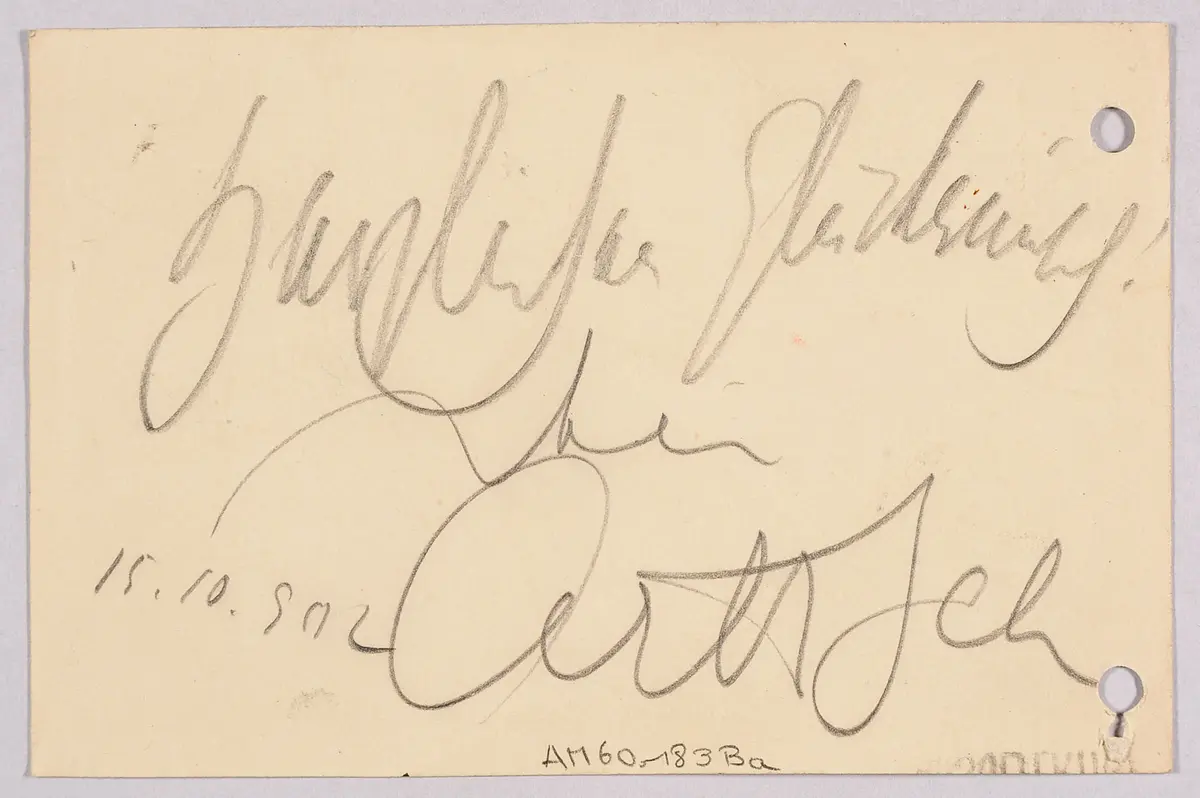 Herzlichen Glückwunsch!
Dein
15.10.902
AM60-183Ba